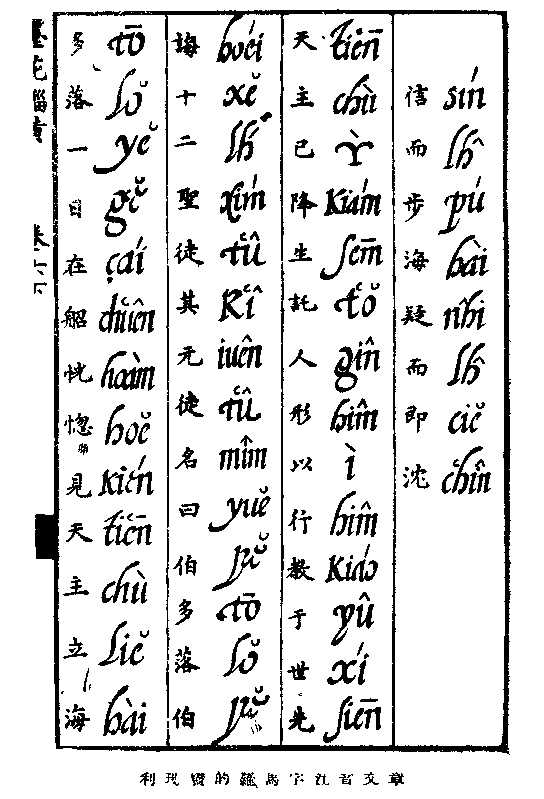 信而步海疑而即沈
sín lh̑ pú hài nhî lh̑ ciĕ chîn
天主已降生託人形以行教于世先
tiēn chù ỳ kiám sēm tŏ gîn hîm ì hîm kiáo yû xí siēn
誨十二聖徒其元徒名曰伯多落伯
hoéi xĕ lh́ xím tû kî iuên tû mîm yuĕ pĕ tō lŏ pĕ
多落一日在船恍惚見天主立海
tō lŏ yĕ gĕ çái chuên hoàm hoĕ kién tiēn chù liĕ hài
墨苑緇黃
利瑪竇的羅馬字注音文章